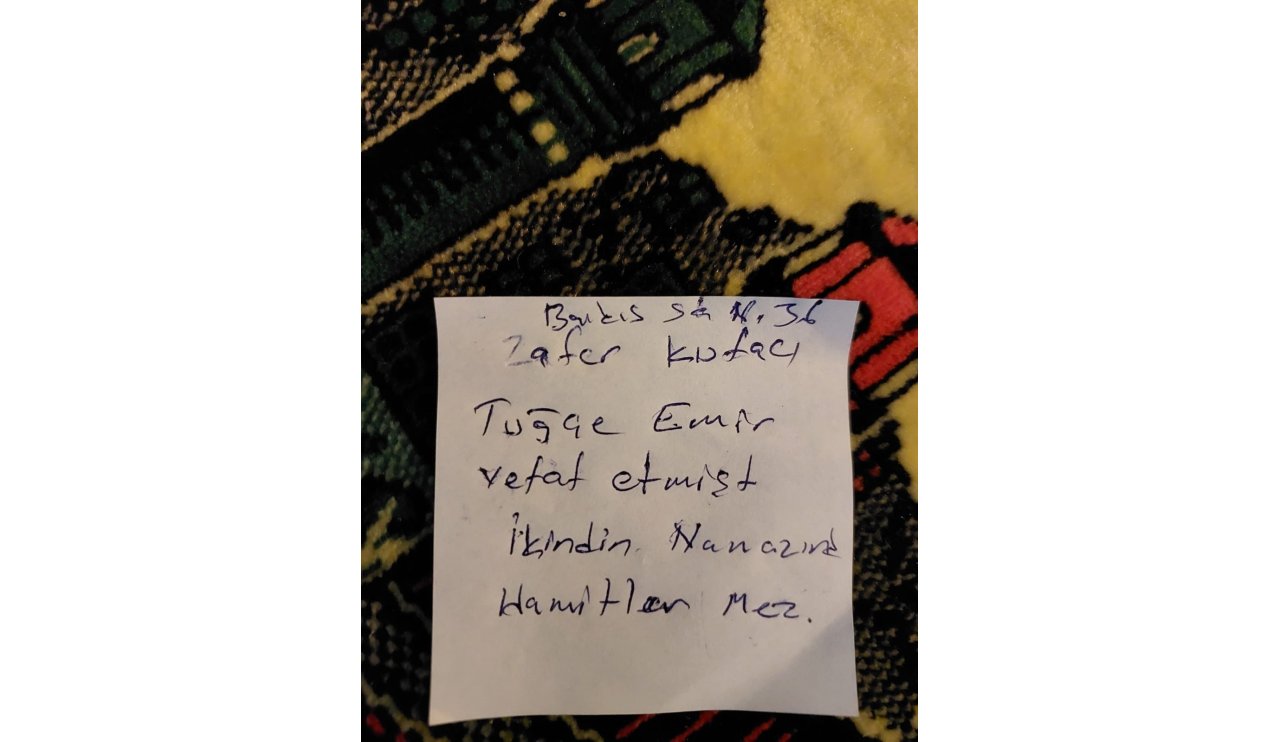 Barış Sk N. 36
Zafer Kufacı
Tuğçe Emir
vefat etmişt
İkindin Namazınd
Hamitler Mez.